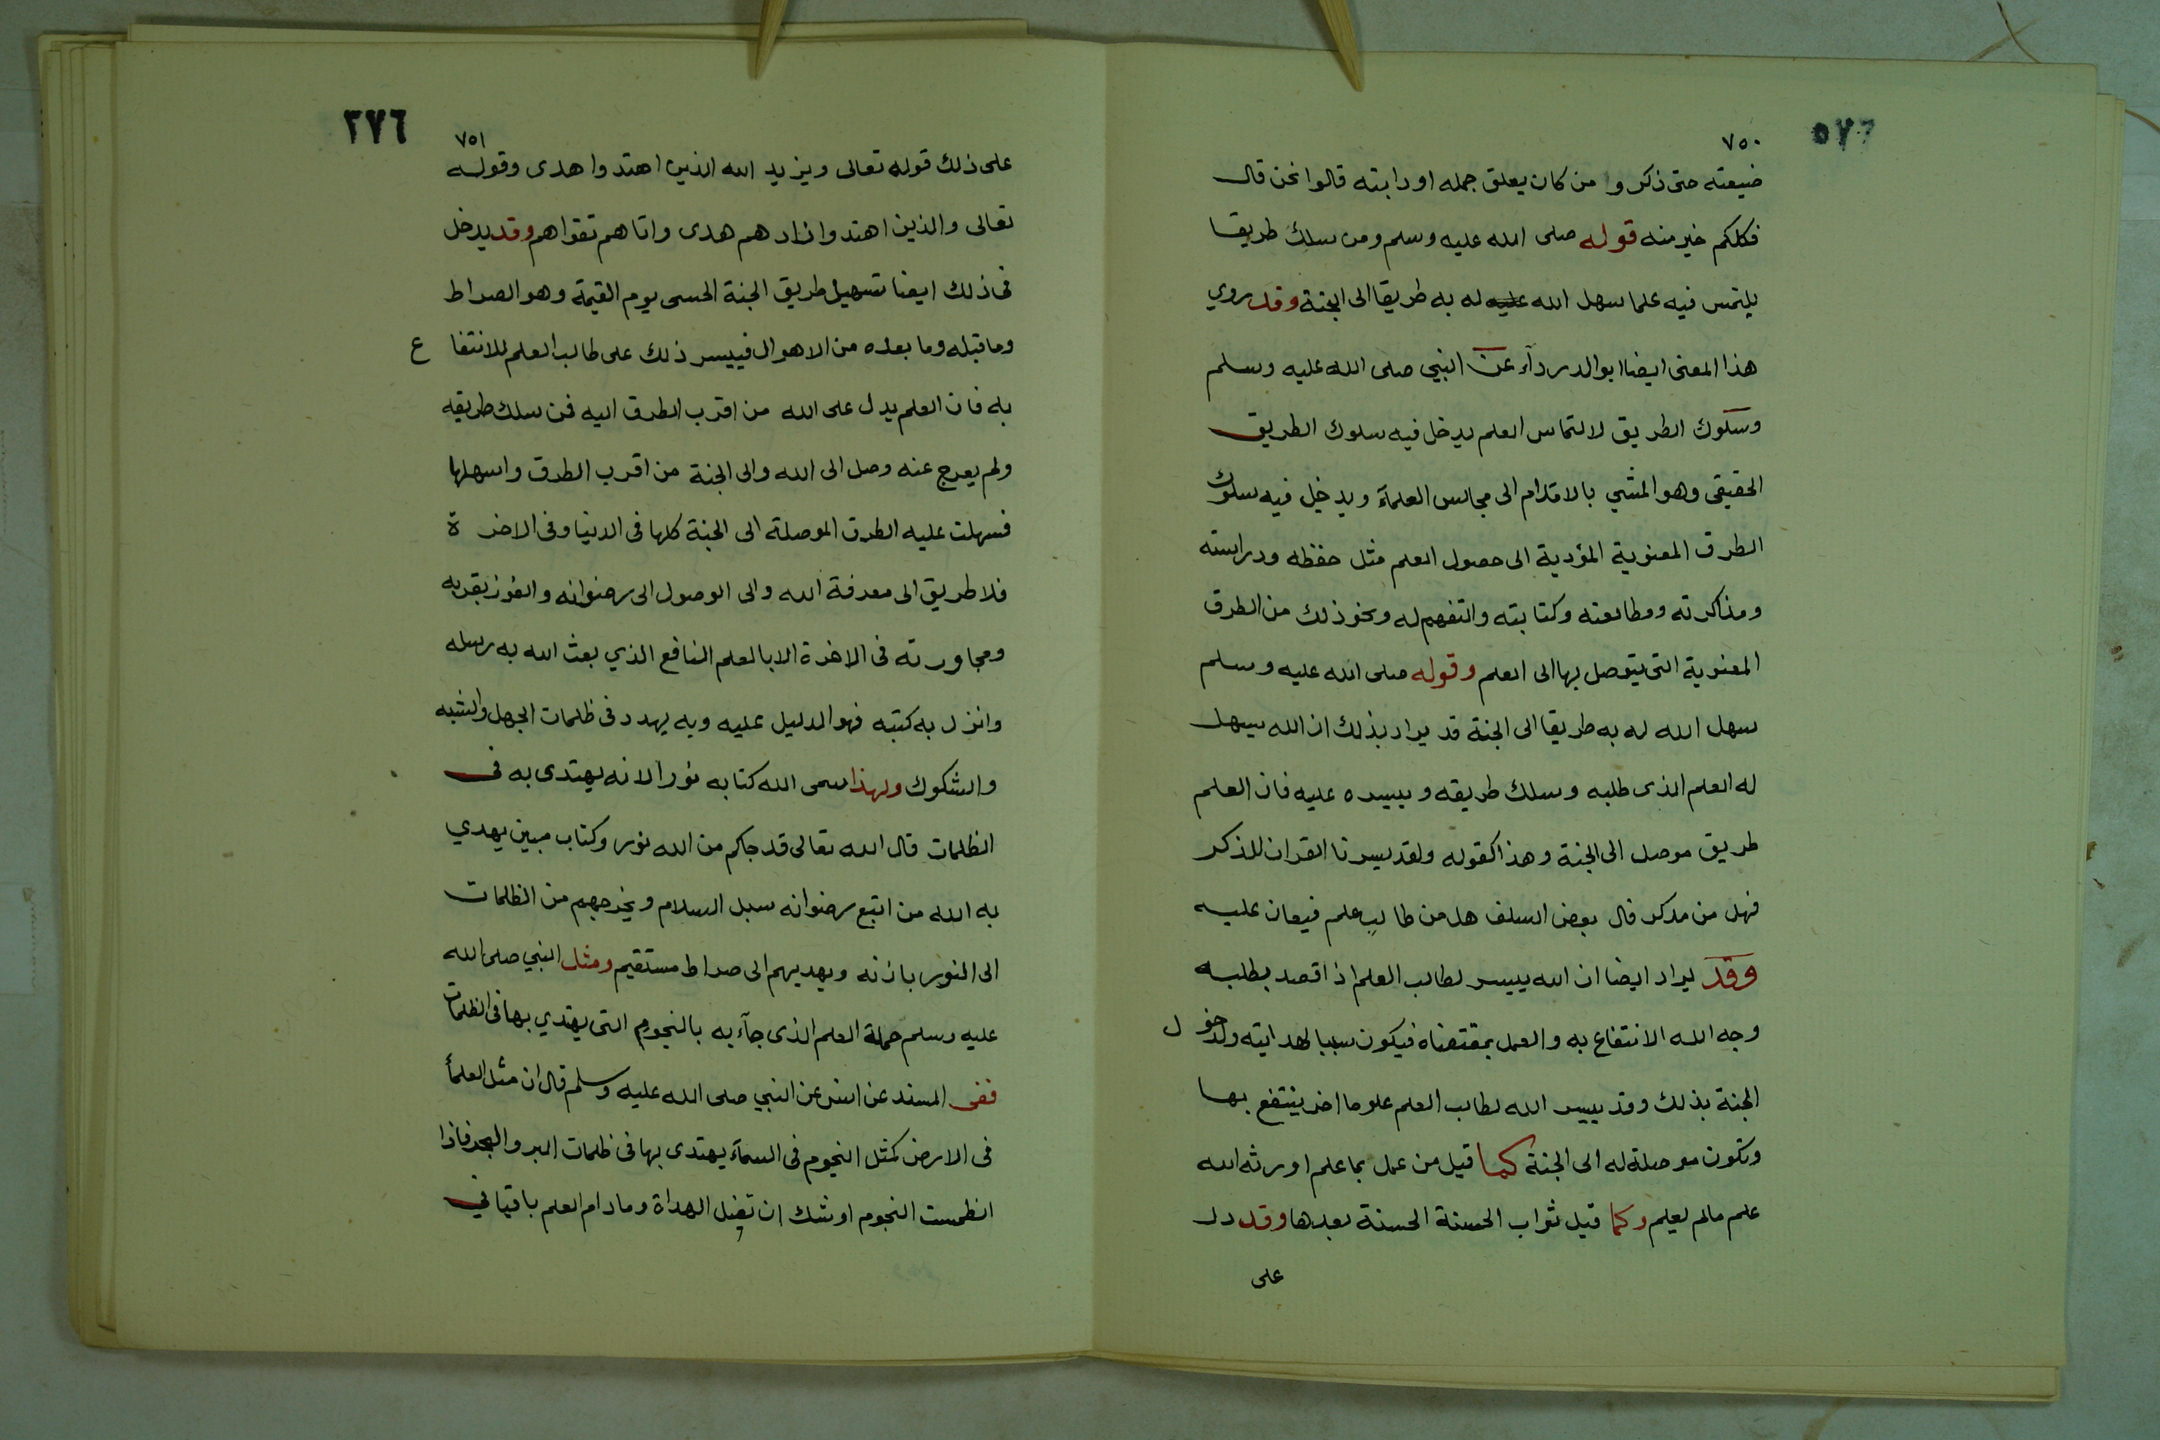 ٥٧٦
٧٥٠
ضيعته حتى ذكروا من كان يعلق جمله او دابته قالوا نحن قال
فكلكم خير منه قوله صلى الله عليه وسلم ومن سلك طريقا
يلتمس فيه علما سهل الله عليه له به طريقا الى الجنة وقد روي
هذا المعنى ايضا ابو الدرداء عن النبي صلى الله عليه وسلم
وسلوك الطريق لالتماس العلم يدخل فيه سلوك الطريق
الحقيقي وهو المشي بالاقدام الى مجالس العلماء ويدخل فيه سلوك
الطرق المعنوية المؤدية الى حصول العلم مثل حفظه ودراسته
ومذاكرته ومطالعته وكتابته والتفهم له ونحو ذلك من الطرق
المعنوية التي يتوصل بها الى العلم وقوله صلى الله عليه وسلم
سهل الله له به طريقا الى الجنة قد يراد بذلك ان الله يسهل
له العلم الذى طلبه وسلك طريقه وييسره عليه فان العلم
طريق موصل الى الجنة وهذا كقوله ولقد يسرنا القران للذكر
فهل من مدكر قال بعض السلف هل من طالب علم فيعان عليه
وقد يراد ايضا ان الله ييسر لطالب العلم اذا قصد بطلبه
وجه الله الانتفاع به والعمل بمقتضاه فيكون سببا لهدايته ولدخول
الجنة بذلك وقد ييسر الله لطالب العلم علوما اخر ينتفع بها
وتكون موصلة له الى الجنة كما قيل من عمل بما علم اورثه الله
علم مالم يعلم وكما قيل ثواب الحسنة الحسنة بعدها وقد دل
على
٢٧٦
٧٥١
على ذلك قوله تعالى ويزيد الله الذين اهتدوا هدى وقوله
تعالى والذين اهتدوا زادهم هدى واتاهم تقواهم وقد يدخل
فى ذلك ايضا تسهيل طريق الجنة الحسى يوم القيمة وهو الصراط
وما قبله وما بعده من الاهوال فييسر ذلك على طالب العلم للانتفاع
به فان العلم يدل على الله من اقرب الطرق اليه فمن سلك طريقه
ولم يعرج عنه وصل الى الله والى الجنة من اقرب الطرق واسهلها
فسهلت عليه الطرق الموصلة الى الجنة كلها فى الدنيا وفى الاخرة
فلا طريق الى معرفة الله والى الوصول الى رضوانه والفوز بقربه
ومجاورته فى الاخرة الا بالعلم النافع الذي بعث الله به رسله
وانزل به كتبه فهو الدليل عليه وبه يهدد فى ظلمات الجهل والشبه
والشكوك ولهذا سمى الله كتابه نورا لانه يهتدى به فى
الظلمات قال الله تعالى قد جاكم من الله نور وكتاب مبين يهدي
به الله من اتبع رضوانه سبل السلام ويخرجهم من الظلمات
الى النور باذنه ويهديهم الى صراط مستقيم ومثل النبي صلى الله
عليه وسلم حملة العلم الذى جاء به بالنجوم التى يهتدي بها فى الظلمات
ففى المسند عن انس عن النبي صلى الله عليه وسلم قال ان مثل العلمأ
فى الارض كمثل النجوم فى السماء يهتدى بها فى ظلمات البر والبحر فاذا
انطمست النجوم اوشك ان تضل الهداة ومادام العلم باقيا في